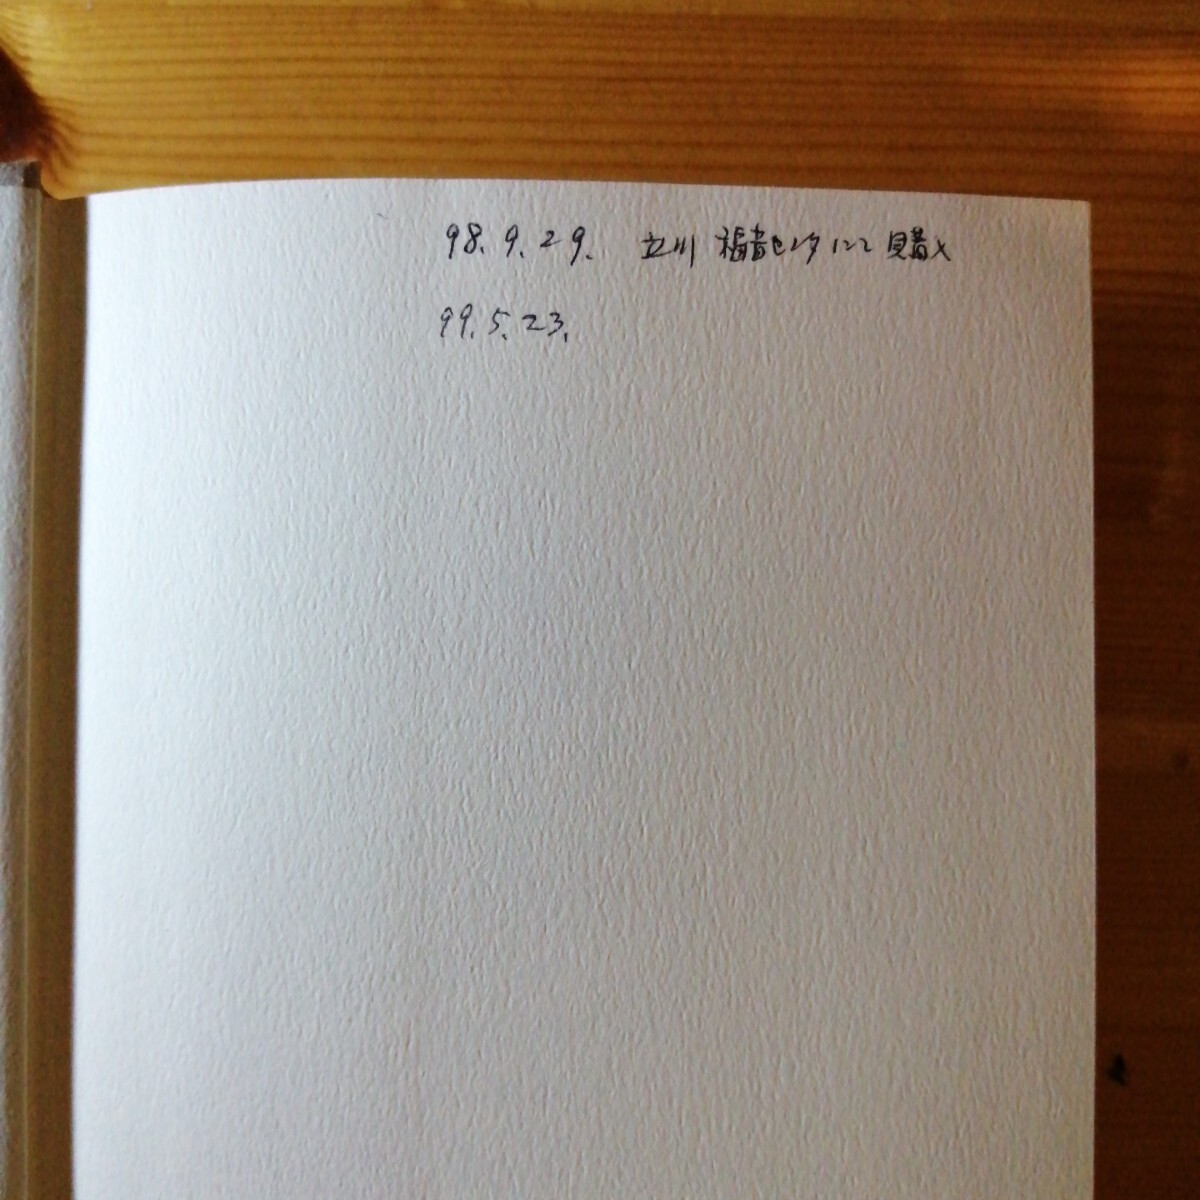 98.9.29. 立川 福音センタにて購入
99.5.23.